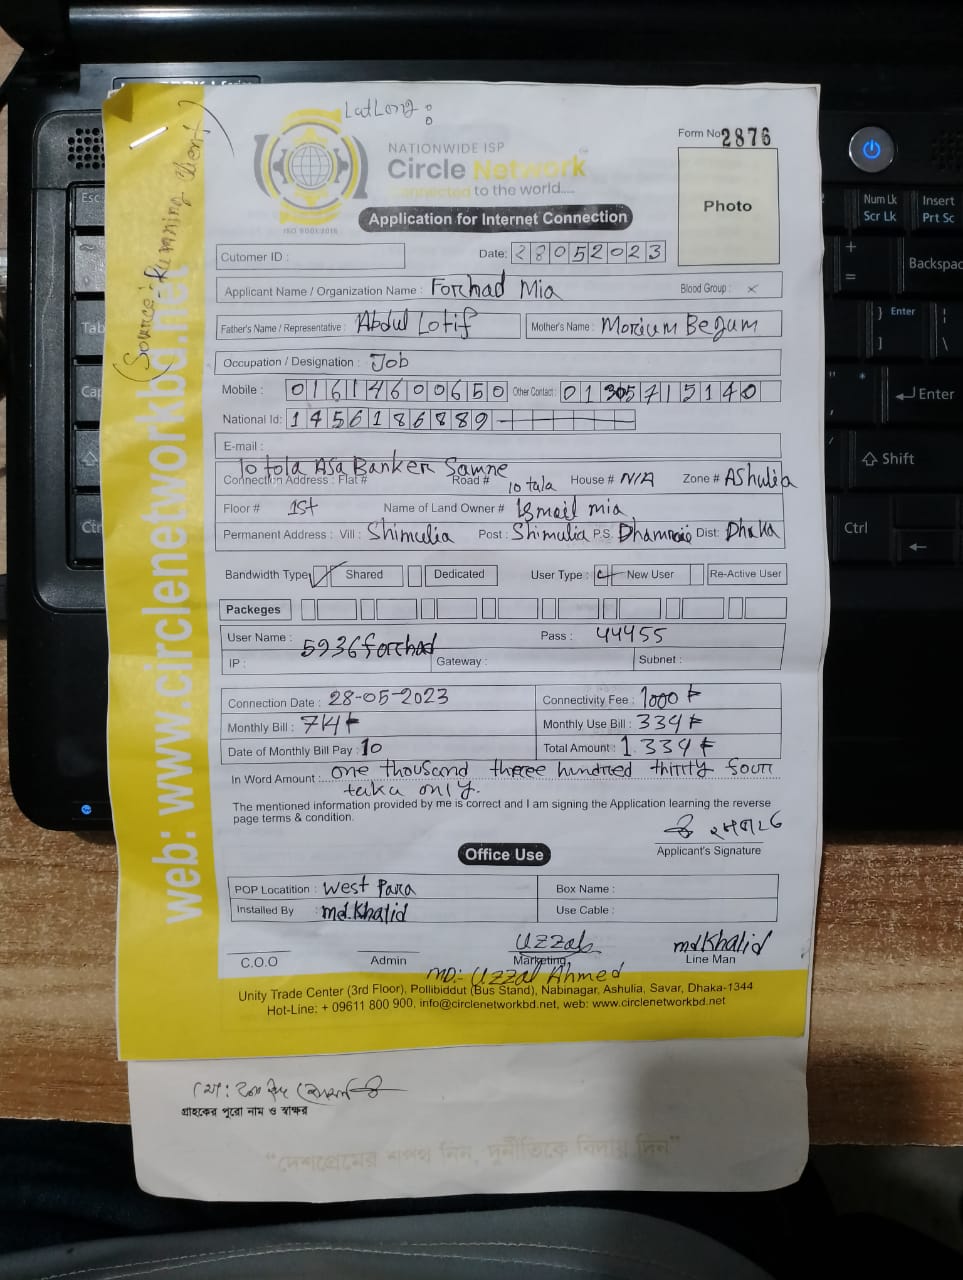 LatLong :
NATIONWIDE ISP
Circle Network
Connected to the world....
ISO 9001:2015
Form No 2876
Photo
Application for Internet Connection
(Source: Running Client)
Cutomer ID :
Date: 28052023
Applicant Name / Organization Name : Forhad Mia Blood Group : ×
Father's Name / Representative : Abdul Lotif Mother's Name : Morium Begum
Occupation / Designation : Job
Mobile : 01614600650 Other Contact : 01305715140
National Id: 1456186889
E-mail :
10 tola ASa Banker Samne
Connection Address : Flat # Road # 10 tala House # N/A Zone # AShulia
Floor # 1St Name of Land Owner # Ismail mia
Permanent Address : Vill : Shimulia Post : Shimulia P.S. Dhamrai Dist: Dhaka
Bandwidth Type Shared Dedicated User Type : New User Re-Active User
Packeges
User Name : 5936forhad Pass : 44455
IP : Gateway : Subnet :
Connection Date : 28-05-2023 Connectivity Fee : 1000 ৳
Monthly Bill : Monthly Use Bill : 334 ৳
Date of Monthly Bill Pay : 10 Total Amount : 1334 ৳
In Word Amount : one thousand three hundred thirty four
taka only.
The mentioned information provided by me is correct and I am signing the Application learning the reverse
page terms & condition.
Applicant's Signature
Office Use
POP Locatition : West Para Box Name :
Installed By : md.Khalid Use Cable :
Uzzal md Khalid
C.O.O Admin Marketing Line Man
MD:- Uzzal Ahmed
Unity Trade Center (3rd Floor), Pollibiddut (Bus Stand), Nabinagar, Ashulia, Savar, Dhaka-1344
Hot-Line: + 09611 800 900, info@circlenetworkbd.net, web: www.circlenetworkbd.net
web: www.circlenetworkbd.net
গ্রাহকের পুরো নাম ও স্বাক্ষর
"দেশপ্রেমের শপথ নিন, দুর্নীতিকে বিদায় দিন"
Esc
Tab
Num Lk
Scr Lk
Insert
Prt Sc
Backspac
Enter
Enter
Shift
Ctrl